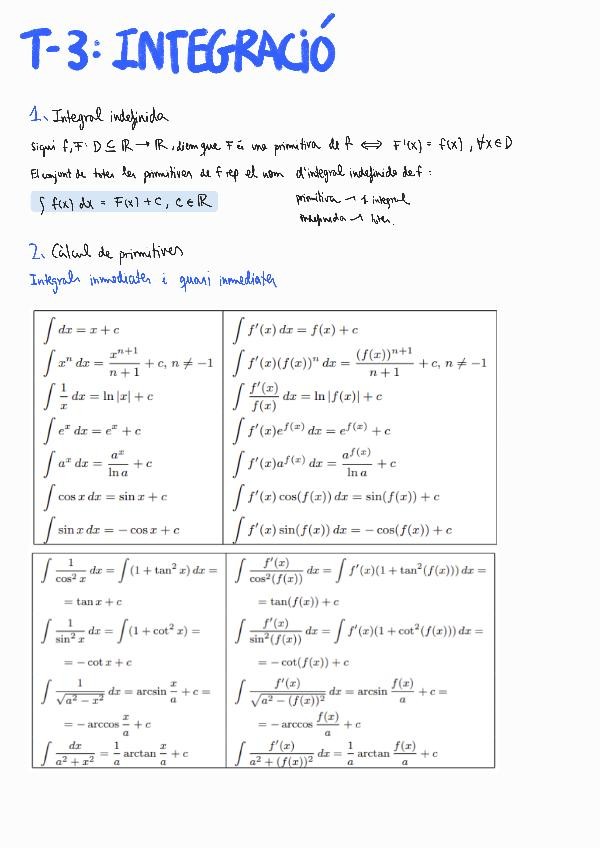 T-3: INTEGRACIÓ
1. Integral indefinida
Sigui f, F: D ⊆ ℝ → ℝ, diem que F és una primitiva de f ⟺ F'(x) = f(x), ∀x∈D
El conjunt de totes les primitives de f rep el nom d'integral indefinida de f:
∫ f(x) dx = F(x) + c, c∈ℝ
primitiva → 1 integral
indefinida → totes.
2. Càlcul de primitives
Integrals immediates i quasi immediates
∫ dx = x + c
∫ f'(x) dx = f(x) + c
∫ x^n dx = x^(n+1)/(n+1) + c, n ≠ −1
∫ f'(x)(f(x))^n dx = (f(x))^(n+1)/(n+1) + c, n ≠ −1
∫ 1/x dx = ln |x| + c
∫ f'(x)/f(x) dx = ln |f(x)| + c
∫ e^x dx = e^x + c
∫ f'(x)e^f(x) dx = e^f(x) + c
∫ a^x dx = a^x/ln a + c
∫ f'(x)a^f(x) dx = a^f(x)/ln a + c
∫ cos x dx = sin x + c
∫ f'(x) cos(f(x)) dx = sin(f(x)) + c
∫ sin x dx = − cos x + c
∫ f'(x) sin(f(x)) dx = − cos(f(x)) + c
∫ 1/cos² x dx = ∫ (1 + tan² x) dx =
= tan x + c
∫ f'(x)/cos²(f(x)) dx = ∫ f'(x)(1 + tan²(f(x))) dx =
= tan(f(x)) + c
∫ 1/sin² x dx = ∫ (1 + cot² x) =
= − cot x + c
∫ f'(x)/sin²(f(x)) dx = ∫ f'(x)(1 + cot²(f(x))) dx =
= − cot(f(x)) + c
∫ 1/√(a² − x²) dx = arcsin x/a + c =
= − arccos x/a + c
∫ f'(x)/√(a² − (f(x))²) dx = arcsin f(x)/a + c =
= − arccos f(x)/a + c
∫ dx/(a² + x²) = 1/a arctan x/a + c
∫ f'(x)/(a² + (f(x))²) dx = 1/a arctan f(x)/a + c